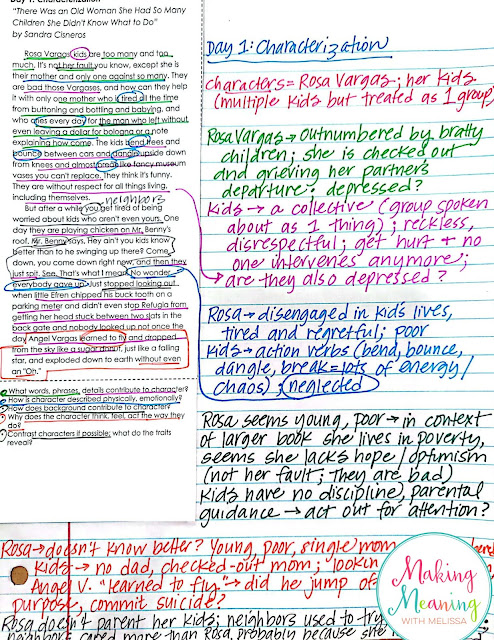 Day 1: Characterization
"There Was an Old Woman She Had So Many
Children She Didn't Know What to Do"
by Sandra Cisneros
Rosa Vargas kids are too many and too
much. It's not her fault you know, except she is
their mother and only one against so many. They
are bad those Vargases, and how can they help
it with only one mother who is tired all the time
from buttoning and bottling and babying, and
who cries every day for the man who left without
even leaving a dollar for bologna or a note
explaining how come. The kids bend trees and
bounce between cars and dangle upside down
from knees and almost break like fancy museum
vases you can't replace. They think it's funny.
They are without respect for all things living,
including themselves.
neighbors
But after a while you get tired of being
worried about kids who aren't even yours. One
day they are playing chicken on Mr. Benny's
roof. Mr. Benny says, Hey ain't you kids know
better than to be swinging up there? Come
down, you come down right now, and then they
just spit. See. That's what I mean. No wonder
everybody gave up. Just stopped looking out
when little Efren chipped his buck tooth on a
parking meter and didn't even stop Refugia from
getting her head stuck between two slats in the
back gate and nobody looked up not once the
day Angel Vargas learned to fly and dropped
from the sky like a sugar donut, just like a falling
star, and exploded down to earth without even
an "Oh."
What words, phrases, details contribute to character?
How is character described physically, emotionally?
How does background contribute to character?
Why does the character think, feel, act the way they
do?
Contrast characters if possible; what do the traits
reveal?
Day 1: Characterization
characters = Rosa Vargas; her kids
(multiple kids but treated as 1 group)
Rosa Vargas → outnumbered by bratty
children; she is checked out
and grieving her partner's
departure. depressed?
Kids → a collective (group spoken
about as 1 thing); reckless,
disrespectful; get hurt + no
one intervenes anymore;
are they also depressed?
Rosa → disengaged in kid's lives,
tired and regretful; poor
Kids → action verbs (bend, bounce,
dangle, break = lots of energy/
chaos); neglected
Rosa seems young, poor → in context
of larger book she lives in poverty,
seems she lacks hope/optimism
(not her fault; They are bad)
Kids have no discipline, parental
guidance → act out for attention?
Rosa → doesn't know better? Young, poor, single mom
Kids → no dad, checked-out mom;
Angel V. "learned to fly" → did he jump
purpose, commit suicide?
Rosa doesn't parent her kids; neighbors used to try
neighbors cared more than Rosa, probably because she
Making
Meaning
WITH MELISSA